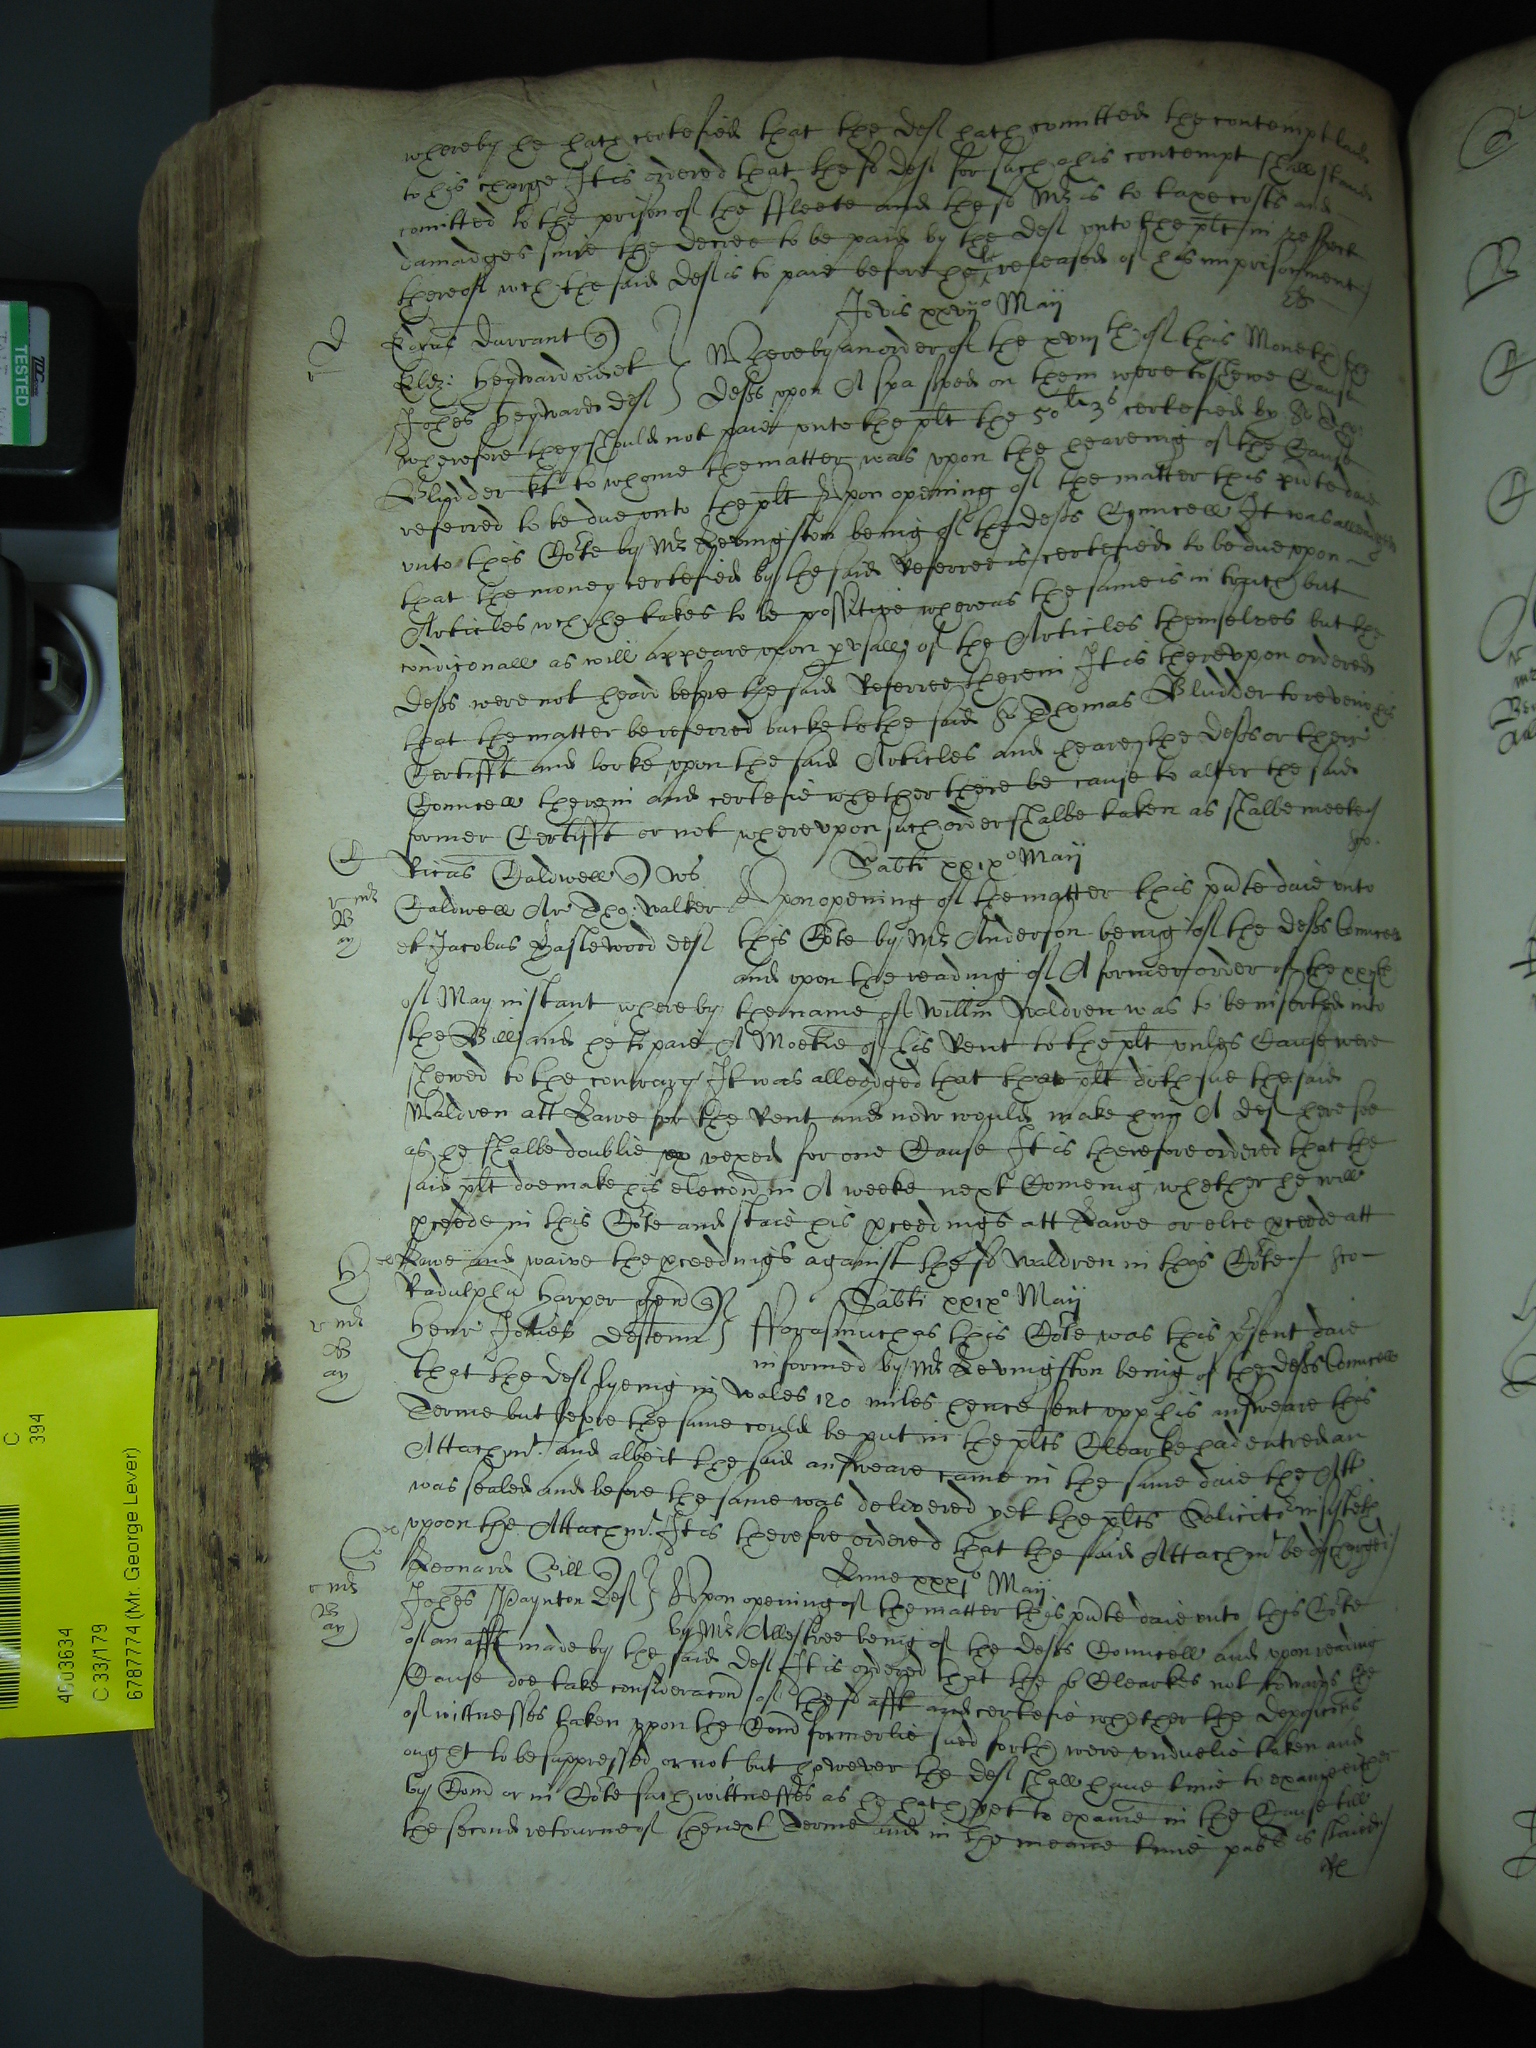 whereby he hath certefied that the def hath comitted the contempt laid
to his charge It is ordered that the sd def for such his contempt shall stand
comitted to the prison of the ffleete and the sd Mr is to taxe costs and
damadges since the decree to be paid by the def unto the plt in respect
thereof wch the said def is to paie before he be released of his imprisonment /
Jovis xxvijo Maij
D
Durrant q
Eliz: Heyward vid et } Whereby an order of the xviijth of this Moneth the
Johes Heyward def } defts upon A spa served on them were to shewe Cause
wherefore they should not paie unto the plt the 50li 3s certefied by Sr Tho:
Bludder kt to whome the matter was upon the heareing of the Cause
referred to be due unto the plt Upon opening of the matter this pnte daie
unto this Cote by Mr Levingston being of the defts Councell It was alleadged
that the money certefied by the said Referree is certefied to be due upon
Articles wch he takes to be possitive whereas the same is in truth but
condiconall as will appeare upon pusall of the Articles themselves but the
defts were not heard before the said Referree therein It is thereupon ordered
that the matter be referred backe to the said Sr Thomas Bludder to reveiw his
Certifft and looke upon the said Articles and heare the defts or their
Councell therein and certefie whether there be cause to alter the said
former Certifft or not whereupon such order shalbe taken as shalbe meete /
C
Ricus Caldwell q Sabti xxixo Maij
Caldwell Ar Tho: Walker Upon opening of the matter this pnte daie unto
et Jacobus Haslewood def this Cote by Mr Anderson being of the defts Councell
and upon the reading of A former order of the
of May instant whereby the name of Willm Waldren was to be inserted into
the Bill and he to paie A Moetie of his Rent to the plt unles Cause were
shewed to the contrary It was alleadged that the plt doth sue the said
Waldren att Lawe for the Rent and now would make him A def here soe
as he shalbe doublie vexed for one Cause It is therefore ordered that the
said plt doe make his eleccon in A weeke next Comeing whether he will
pceede in this Cote and staie his pceedings att Lawe or else pceede att
Lawe and waive the pceedings against the sd Waldren in this Cote /
H
Radulphu Harper gen q } Sabti xxixo Maij
Henr deften } fforasmuch as this Cote was this psent daie
informed by Mr Levingston being of the defts Councell
that the def lyeing in Wales 120 miles hence sent upp his answeare this
Terme but before the same could be put in the plts Clearke had entred an
Attachmt. and albeit the said answeare came in the same daie the Att
was sealed and before the same was delivered yet the plts Solicitr insisteth
upoon the Attachmt. It is therefore ordered that the said Attachmt be discharged /
G
Leonard Gill q } Lune xxxio Maij
Johes Paynton def } Upon opening of the matter this pnte daie unto this Cote
by Mr Allestree being of the defts Councell and upon reading
of an afft made by the said def It is ordered that the 6 Clearkes not towards the
Cause doe take consideracon of the sd afft and certefie whether the deposicons
of wittnesses taken upon the Comn formerlie sued forth were unduelie taken and
ought to be suppressed or not but however the def shall have time to examine either
by Comn or in Cote such wittnesses as he hath yet to examine in the Cause till
the second retourne of the next Terme and in the meane time publ is staied /
TESTED
C
394
4003634
C 33/179
6787774 (Mr. George Lever)